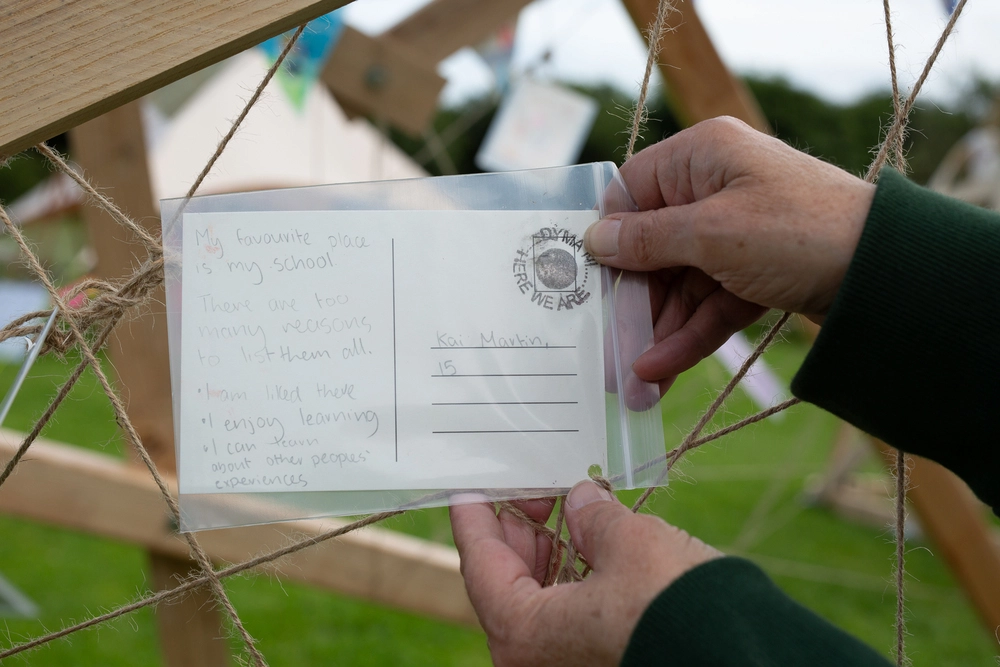 My favourite place
is my school
There are too
many reasons
to list them all.
• I am liked there
• I enjoy learning
• I can learn
about other peoples'
experiences
DYMA NI
HERE WE ARE
Kai Martin,
15